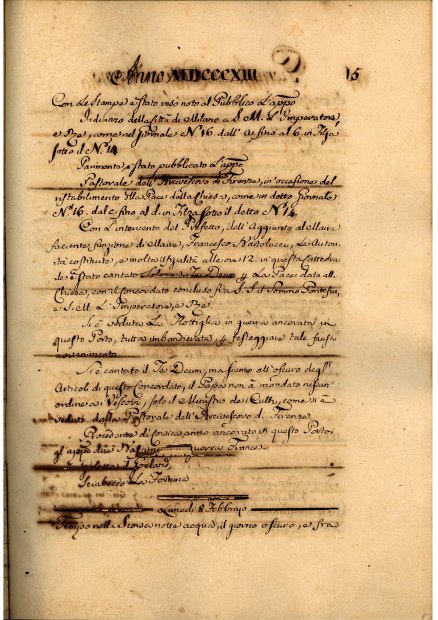 Anno MDCCCXIII. 15
Con Le Stampe è stato reso noto al Pubblico L'appo
Indirizzo della Città di Milano a S. M. L'Imperatore
e Re, come nel Giornale N° 16. dall' a fino al 6 in
sotto il N. 14
Parimente è stato pubblicato L'appo
Pastorale dell' Arcivescovo di Firenze, in occasione del
ristabilimento della Pace della Chiesa, come in detto Giornale
N° 16. dal c fino al d in Filza sotto il detto N° 14.
Con L'intervento del Prefetto, dell' Aggiunto al Maire
faciente funzione di Maire, Francesco Bartolucci, Le Autori
tà costituite, e molto Ufizialità alle ore 12. in questa Cattedra
le è stato cantato Solenne Te Deum La Pace data alla
Chiesa, con il Concordato concluso fra S. S. il Sommo Pontefice,
e S. M. L'Imperatore, e Re.
Si è veduta La Flottiglia in guerra ancorata in
questo Porto, tutta imbandierata festeggiare tale fausto
avvenimento
Si è cantato il Te Deum, ma siamo all' oscuro degli
Articoli di questo Concordato, il Papa non à mandato nessun
ordine a Vescovi, solo il Ministro de Culti, come si è
veduto dalla Pastorale dell' Arcivescovo di Firenze
Procedente di Corsica anno ancorato in questo Porto
gl' due guerra Francesi
Goletta il
Sciabecco La Fortuna
Lunedì 8 Febbrajo
Tempo nella Scorsa notte acqua, il giorno oscuro, e fra